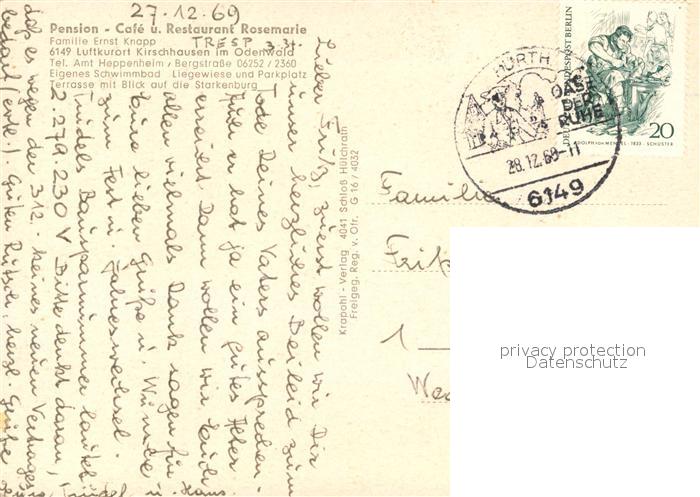 27.12.69
Pension - Café u. Restaurant Rosemarie
Familie Ernst Knapp
TRESP
6149 Luftkurort Kirschhausen im Odenwald
Tel. Amt Heppenheim / Bergstraße 06252 / 2360
Eigenes Schwimmbad Liegewiese und Parkplatz
Terrasse mit Blick auf die Starkenburg
Lieber Fritz, zuerst wollen wir Dir
unser herzliches Beileid zum
Tode Deines Vaters aussprechen.
und er hat ja ein gutes Alter
erreicht. Dann wollen wir Euch
allen vielmals Dank sagen für
Eure lieben Grüße u. Wünsche
zum Fest u. Jahreswechsel.
Trudels Bausparnummer lautet
2.279 230 V Bitte denkt daran,
daß es wegen der 312.- keines neuen Vertrages
bedarf Guten Rutsch, herzl. Grüße
Eure Trudel u. Hans
Krapohl - Verlag 4041 Schloß Hülchrath
Freigeg. Reg. v. Ofr. G 16 / 4032
FÜRTH
OASE
DER
RUHE
28.12.69-11
6149
DEUTSCHE BUNDESPOST BERLIN
20
ADOLPH VON MENZEL · 1833 · SCHUSTER
Familie
Fritz
1
privacy protection
Datenschutz